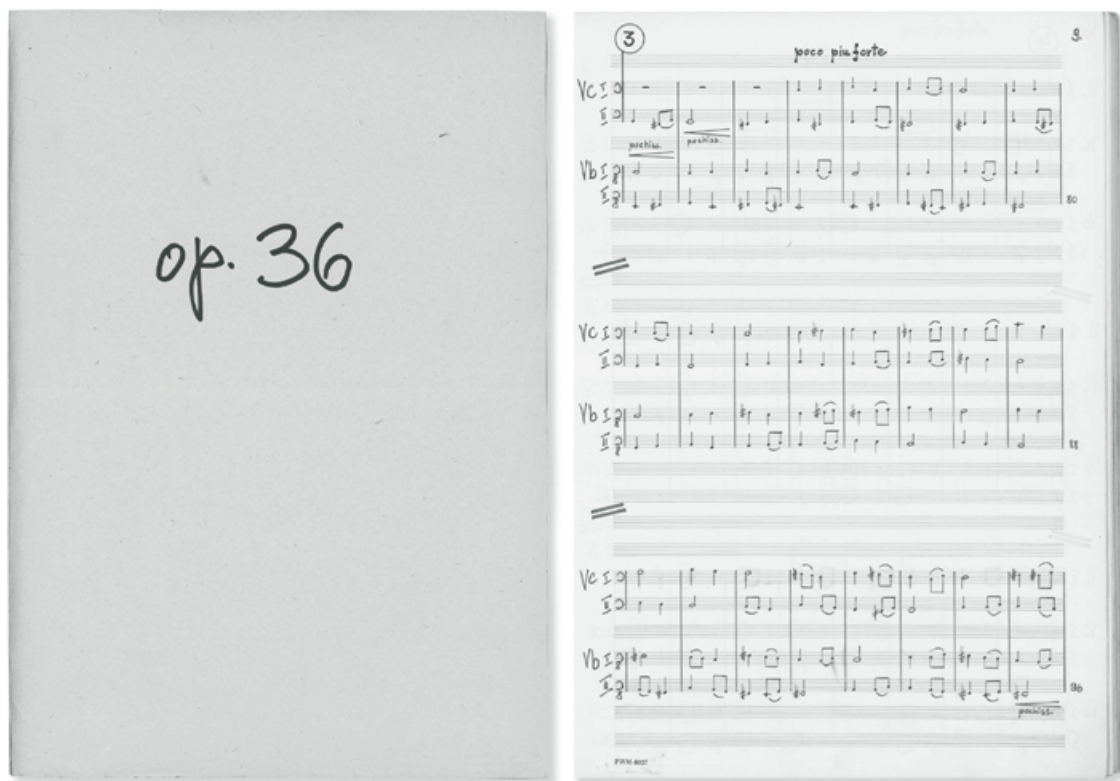 op. 36
3
9.
poco più forte
Vc I
II
pochiss.
pochiss.
Vb I
II
80
Vc I
II
Vb I
II
88
Vc I
II
Vb I
II
96
pochiss.
PWM-8037